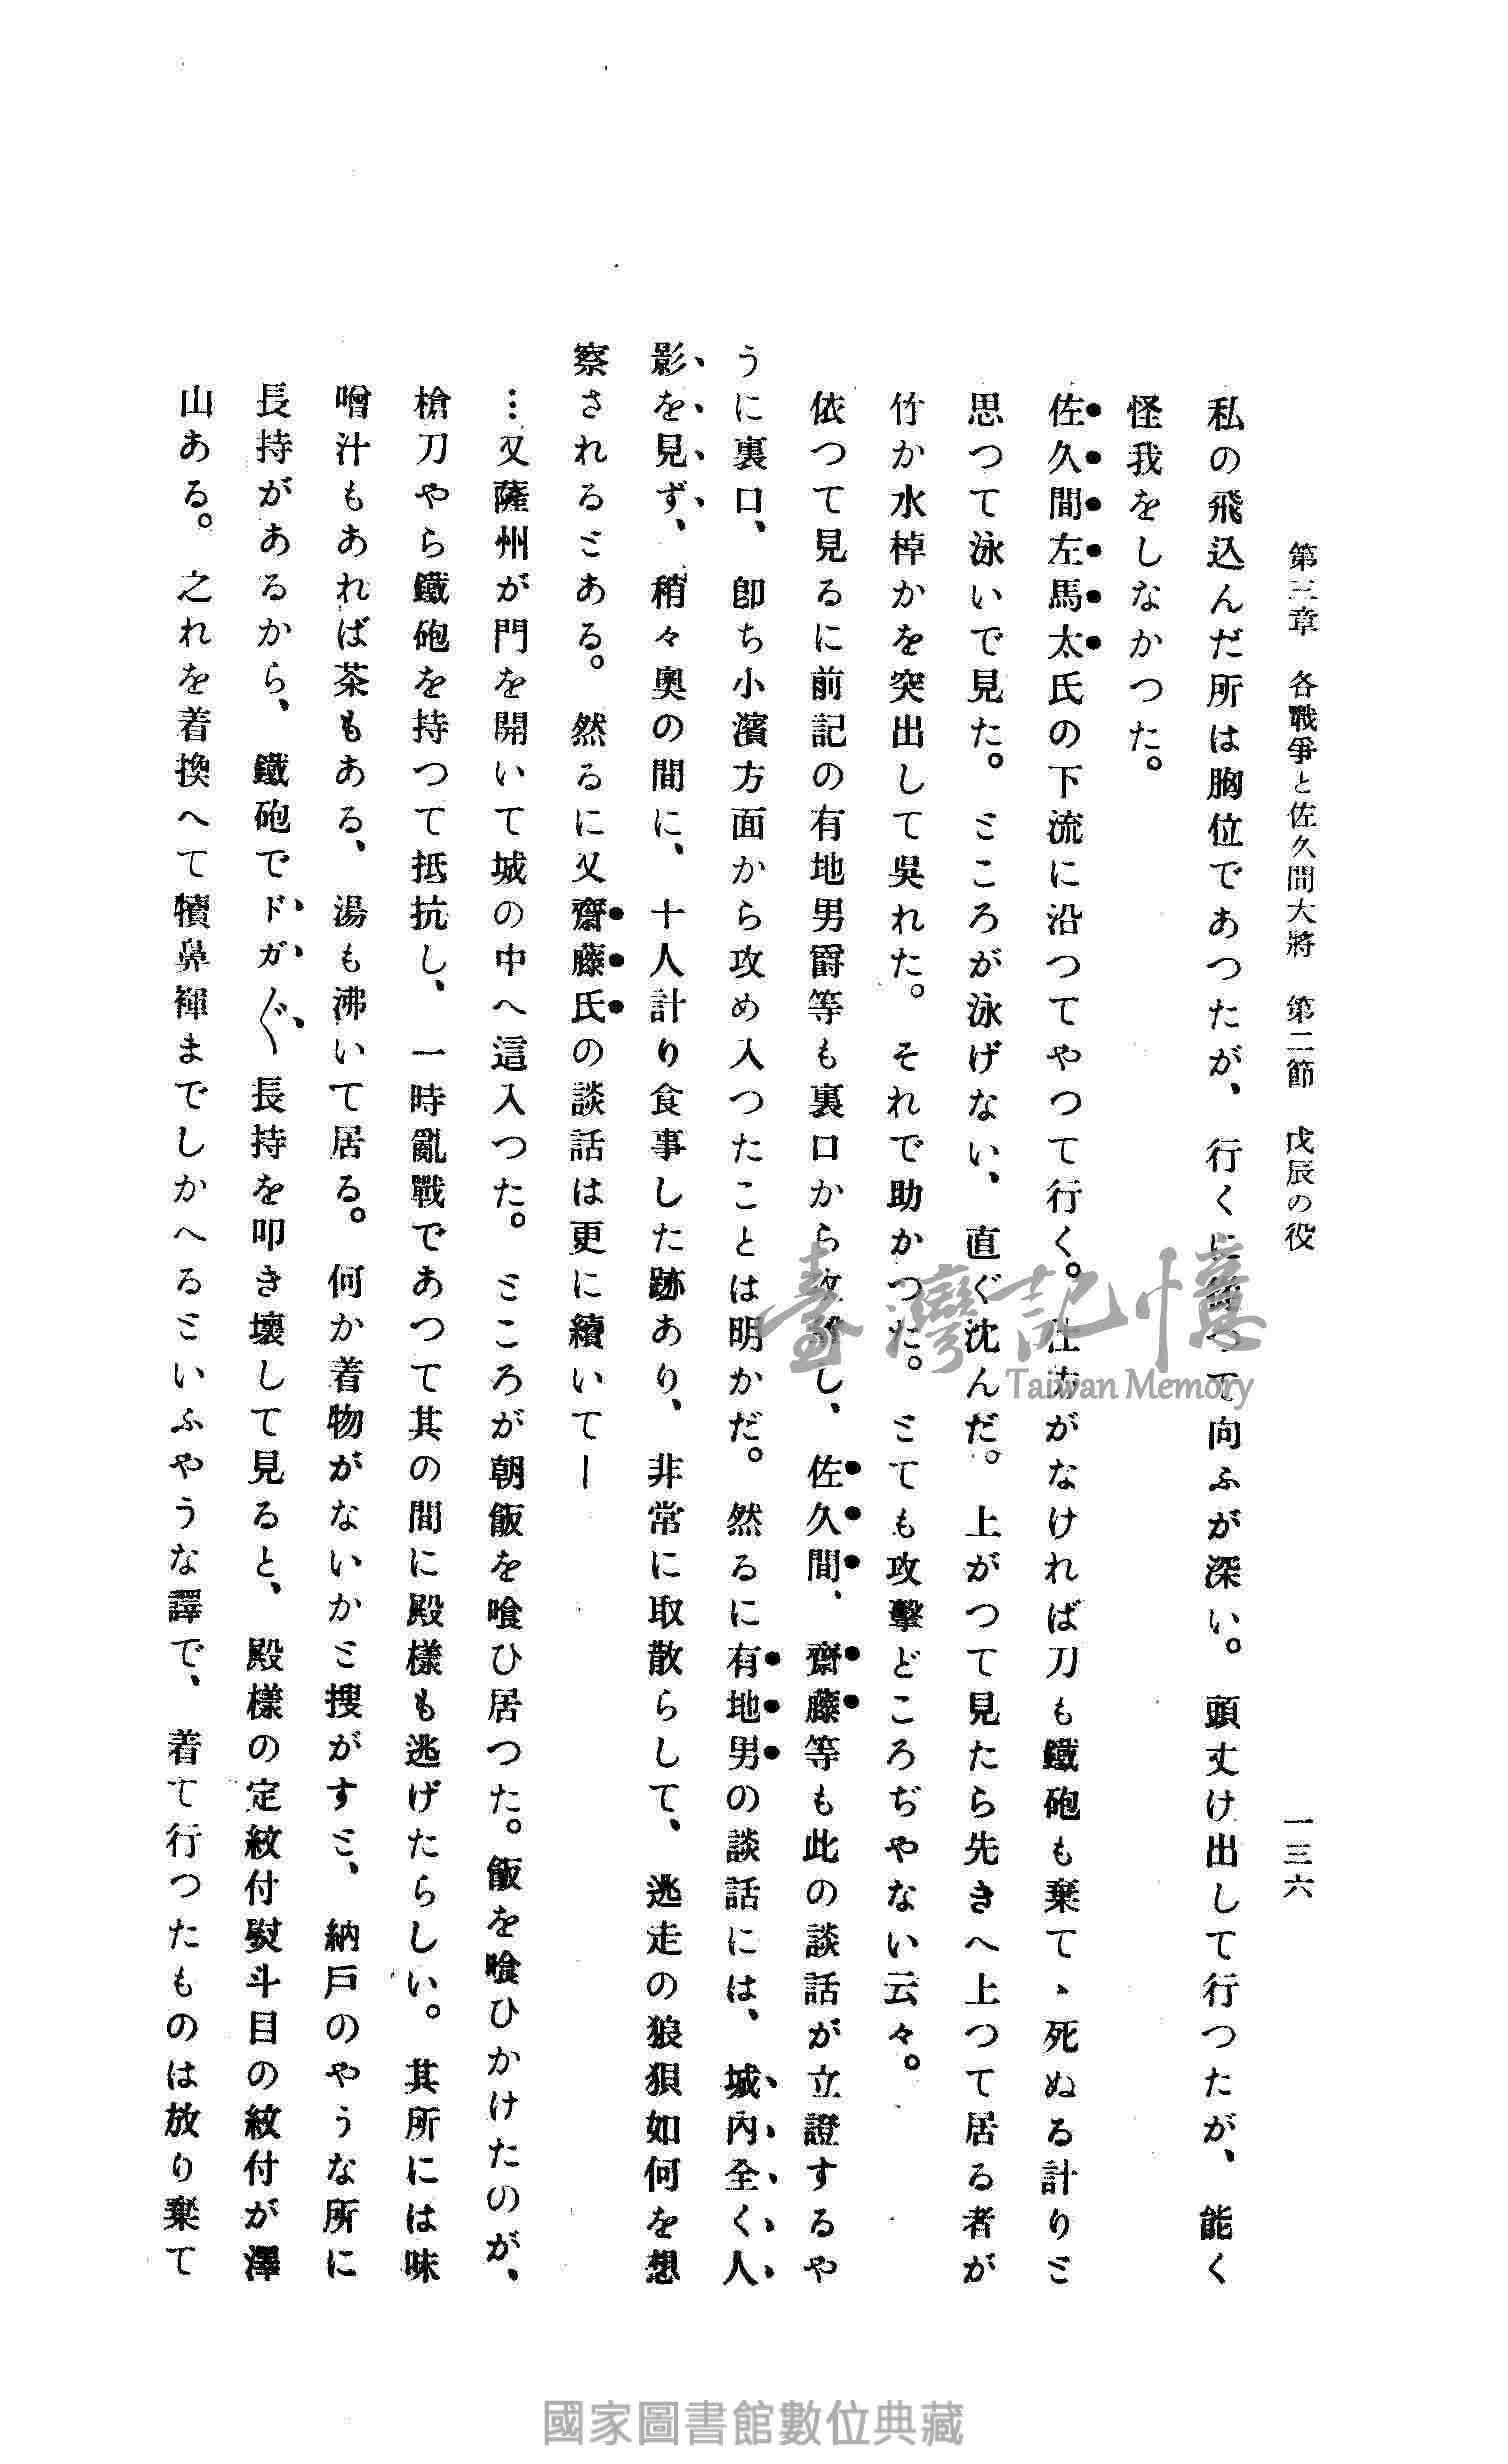 第三章　各戰爭と佐久間大將　第二節　戊辰の役
一三六
私の飛込んだ所は胸位であつたが、行くに つて向ふが深い。頭丈け出して行つたが、能く
怪我をしなかつた。
佐久間左馬太氏の下流に沿つてやつて行く。仕方がなければ刀も鐵砲も棄てゝ死ぬる計りと
思つて泳いで見た。ところが泳げない、直ぐ沈んだ。上がつて見たら先きへ上つて居る者が
竹か水棹かを突出して吳れた。それで助かつた。とても攻擊どころぢやない云々。
依つて見るに前記の有地男爵等も裏口から攻擊し、佐久間、齋藤等も此の談話が立證するや
うに裏口、卽ち小濱方面から攻め入つたことは明かだ。然るに有地男の談話には、城內全く人
影を見ず、稍々奧の間に、十人計り食事した跡あり、非常に取散らして、逃走の狼狽如何を想
察されるとある。然るに又齋藤氏の談話は更に續いてー
…又薩州が門を開いて城の中へ這入つた。ところが朝飯を喰ひ居つた。飯を喰ひかけたのが、
槍刀やら鐵砲を持つて抵抗し、一時亂戰であつて其の間に殿樣も逃げたらしい。其所には味
噌汁もあれば茶もある、湯も沸いて居る。何か着物がないかと搜がすと、納戶のやうな所に
長持があるから、鐵砲でドガ〴〵長持を叩き壞して見ると、殿樣の定紋付熨斗目の紋付が澤
山ある。之れを着換へて犢鼻褌までしかへるといふやうな譯で、着て行つたものは放り棄て
臺灣記憶
Taiwan Memory
國家圖書館數位典藏